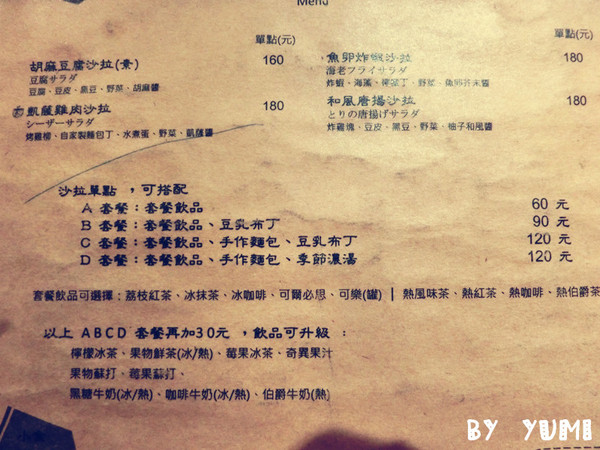 Menu
單點(元)
胡麻豆腐沙拉(素) 160
豆腐サラダ
豆腐、豆皮、黑豆、野菜、胡麻醬
凱薩雞肉沙拉 180
シーザーサラダ
烤雞柳、自家製麵包丁、水煮蛋、野菜、凱薩醬
單點(元)
魚卵炸蝦沙拉 180
海老フライサラダ
炸蝦、海藻、野菜、魚卵芥末醬
和風唐揚沙拉 180
とりの唐揚げサラダ
炸雞塊、豆皮、黑豆、野菜、柚子和風醬
沙拉單點 ，可搭配
A 套餐：套餐飲品 60 元
B 套餐：套餐飲品、豆乳布丁 90 元
C 套餐：套餐飲品、手作麵包、豆乳布丁 120 元
D 套餐：套餐飲品、手作麵包、季節濃湯 120 元
套餐飲品可選擇：荔枝紅茶、冰抹茶、冰咖啡、可爾必思、可樂(罐) | 熱風味茶、熱紅茶、熱咖啡、熱伯爵茶
以上 ABCD 套餐再加30元 ，飲品可升級 ：
檸檬冰茶、果物鮮茶(冰/熱)、莓果冰茶、奇異果汁
果物蘇打、莓果蘇打、
黑糖牛奶(冰/熱)、咖啡牛奶(冰/熱)、伯爵牛奶(熱)
BY YUMI